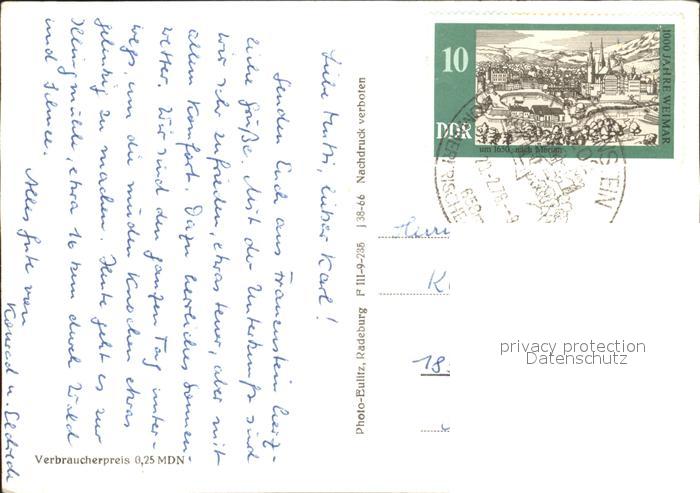 Liebe Mutti, lieber Karl!
Senden Euch aus Frauenstein herz-
liche Grüße. Mit der Unterkunft sind
wir sehr zufrieden, etwas teuer, aber mit
allem Komfort. Dazu herrliches Sonnen-
wetter. Wir sind den ganzen Tag unter-
wegs, um die müden Knochen etwas
gelenkig zu machen. Heute geht es zur
Illingmühle, etwa 16 km durch Wald
und Schnee.
Alles Gute von
Konrad u.
Verbraucherpreis 0,25 MDN
Photo-Eulitz, Radeburg F III-9-235 J 38-66 Nachdruck verboten
10
DDR
um 1650, nach Merian
1000 JAHRE WEIMAR
privacy protection
Datenschutz